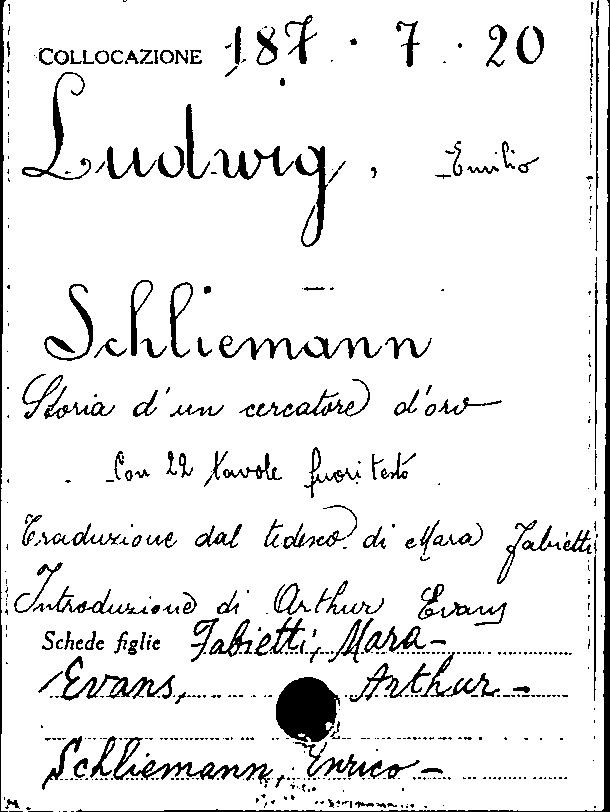 COLLOCAZIONE 187 · 7 · 20
Ludwig, Emilio
Schliemann
Storia d'un cercatore d'oro
Con 22 tavole fuori testo
Traduzione dal tedesco di Mara Fabietti
Introduzione di Arthur Evans
Schede figlie Fabietti, Mara –
Evans, Arthur –
Schliemann, Enrico –